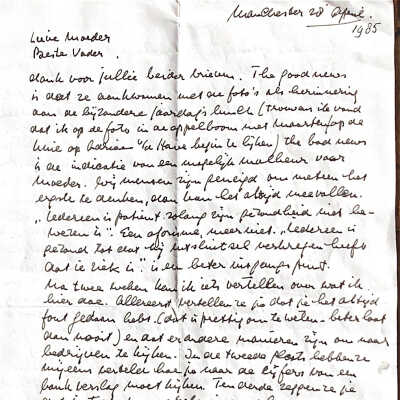 Manchester 28 April.
1985
Lieve Moeder
Beste Vader.
dank voor jullie beider brieven. The good news
is dat ze aankwamen met de foto's als herinnering
aan de bijzondere jaardag's lunch (trouwens ik vind
dat ik op de foto in de appelboom met Maarten op de
knie op Adriaan "te Have begin te lijken) the bad news
is de indicatie van een mogelijk malheur voor
Moeder. Wij mensen zijn geneigd om meteen het
ergste te denken, dan kan het altijd meevallen.
"Iedereen is patient zolang zijn gezondheid niet be-
wezen is". Een aforisme, meer niet. "Iedereen is
gezond tot dat hij uitsluitsel verkregen heeft
dat ie ziek is" is een beter uitgangspunt.
Na twee weken kan ik iets vertellen over wat ik
hier doe. Allereerst vertellen ze je dat je het altijd
fout gedaan hebt (dat is prettig om te weten - beter laat
dan nooit) en dat er andere manieren zijn om naar
bedrijven te kijken. In de tweede plaats hebben ze
mij eens verteld hoe je naar de cijfers van een
bank verslag moet kijken. Ten derde zeggen ze je